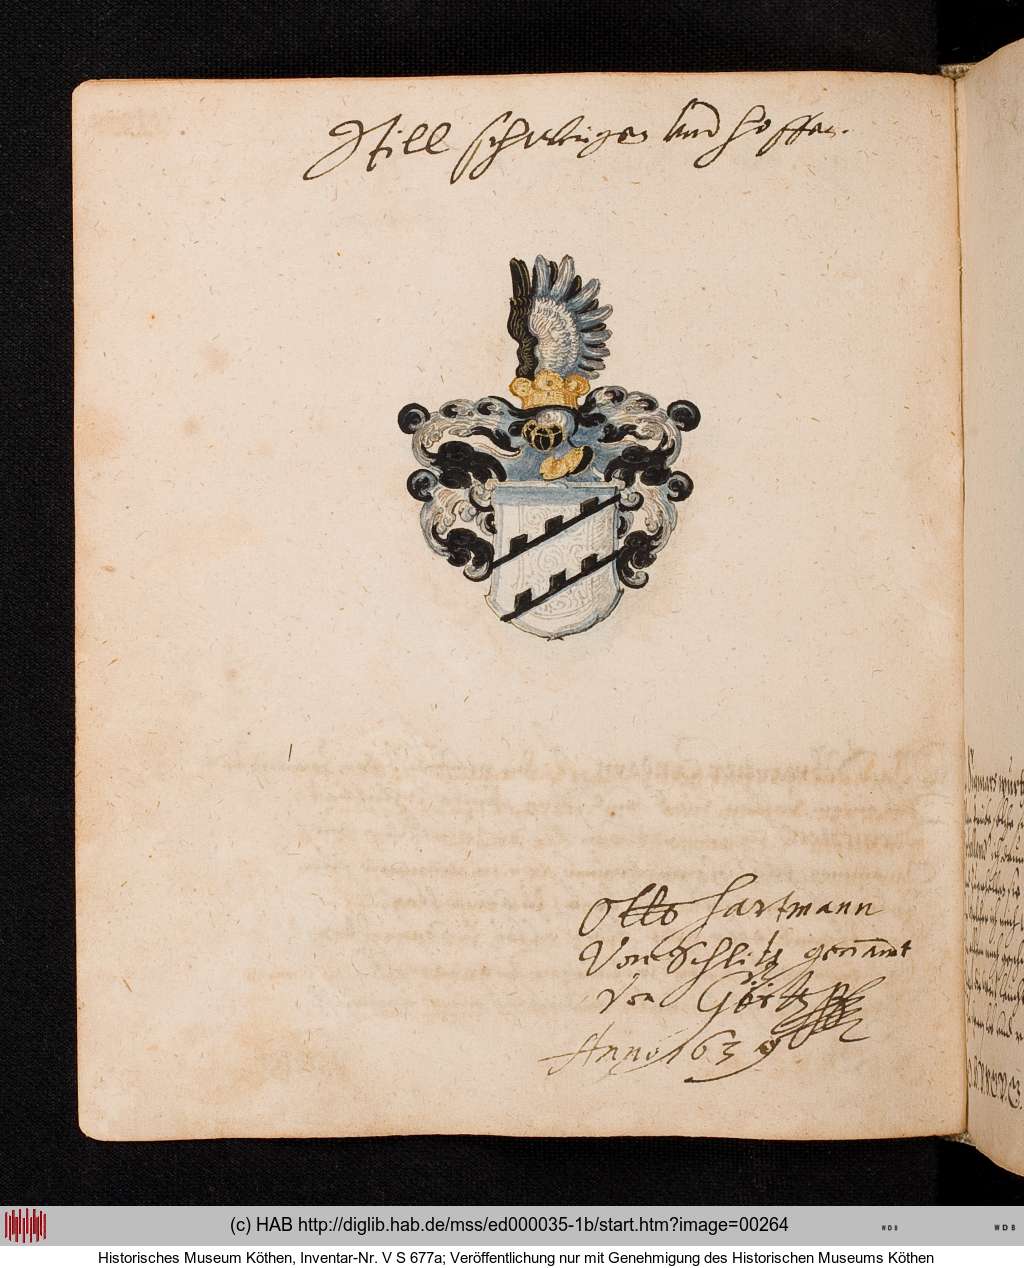 Still schweigen und hoffen.
Otto Hartmann
Von Schlitz genandt
Von Görtz
Anno 1639
(c) HAB http://diglib.hab.de/mss/ed000035-1b/start.htm?image=00264
WDB
WDB
Historisches Museum Köthen, Inventar-Nr. V S 677a; Veröffentlichung nur mit Genehmigung des Historischen Museums Köthen